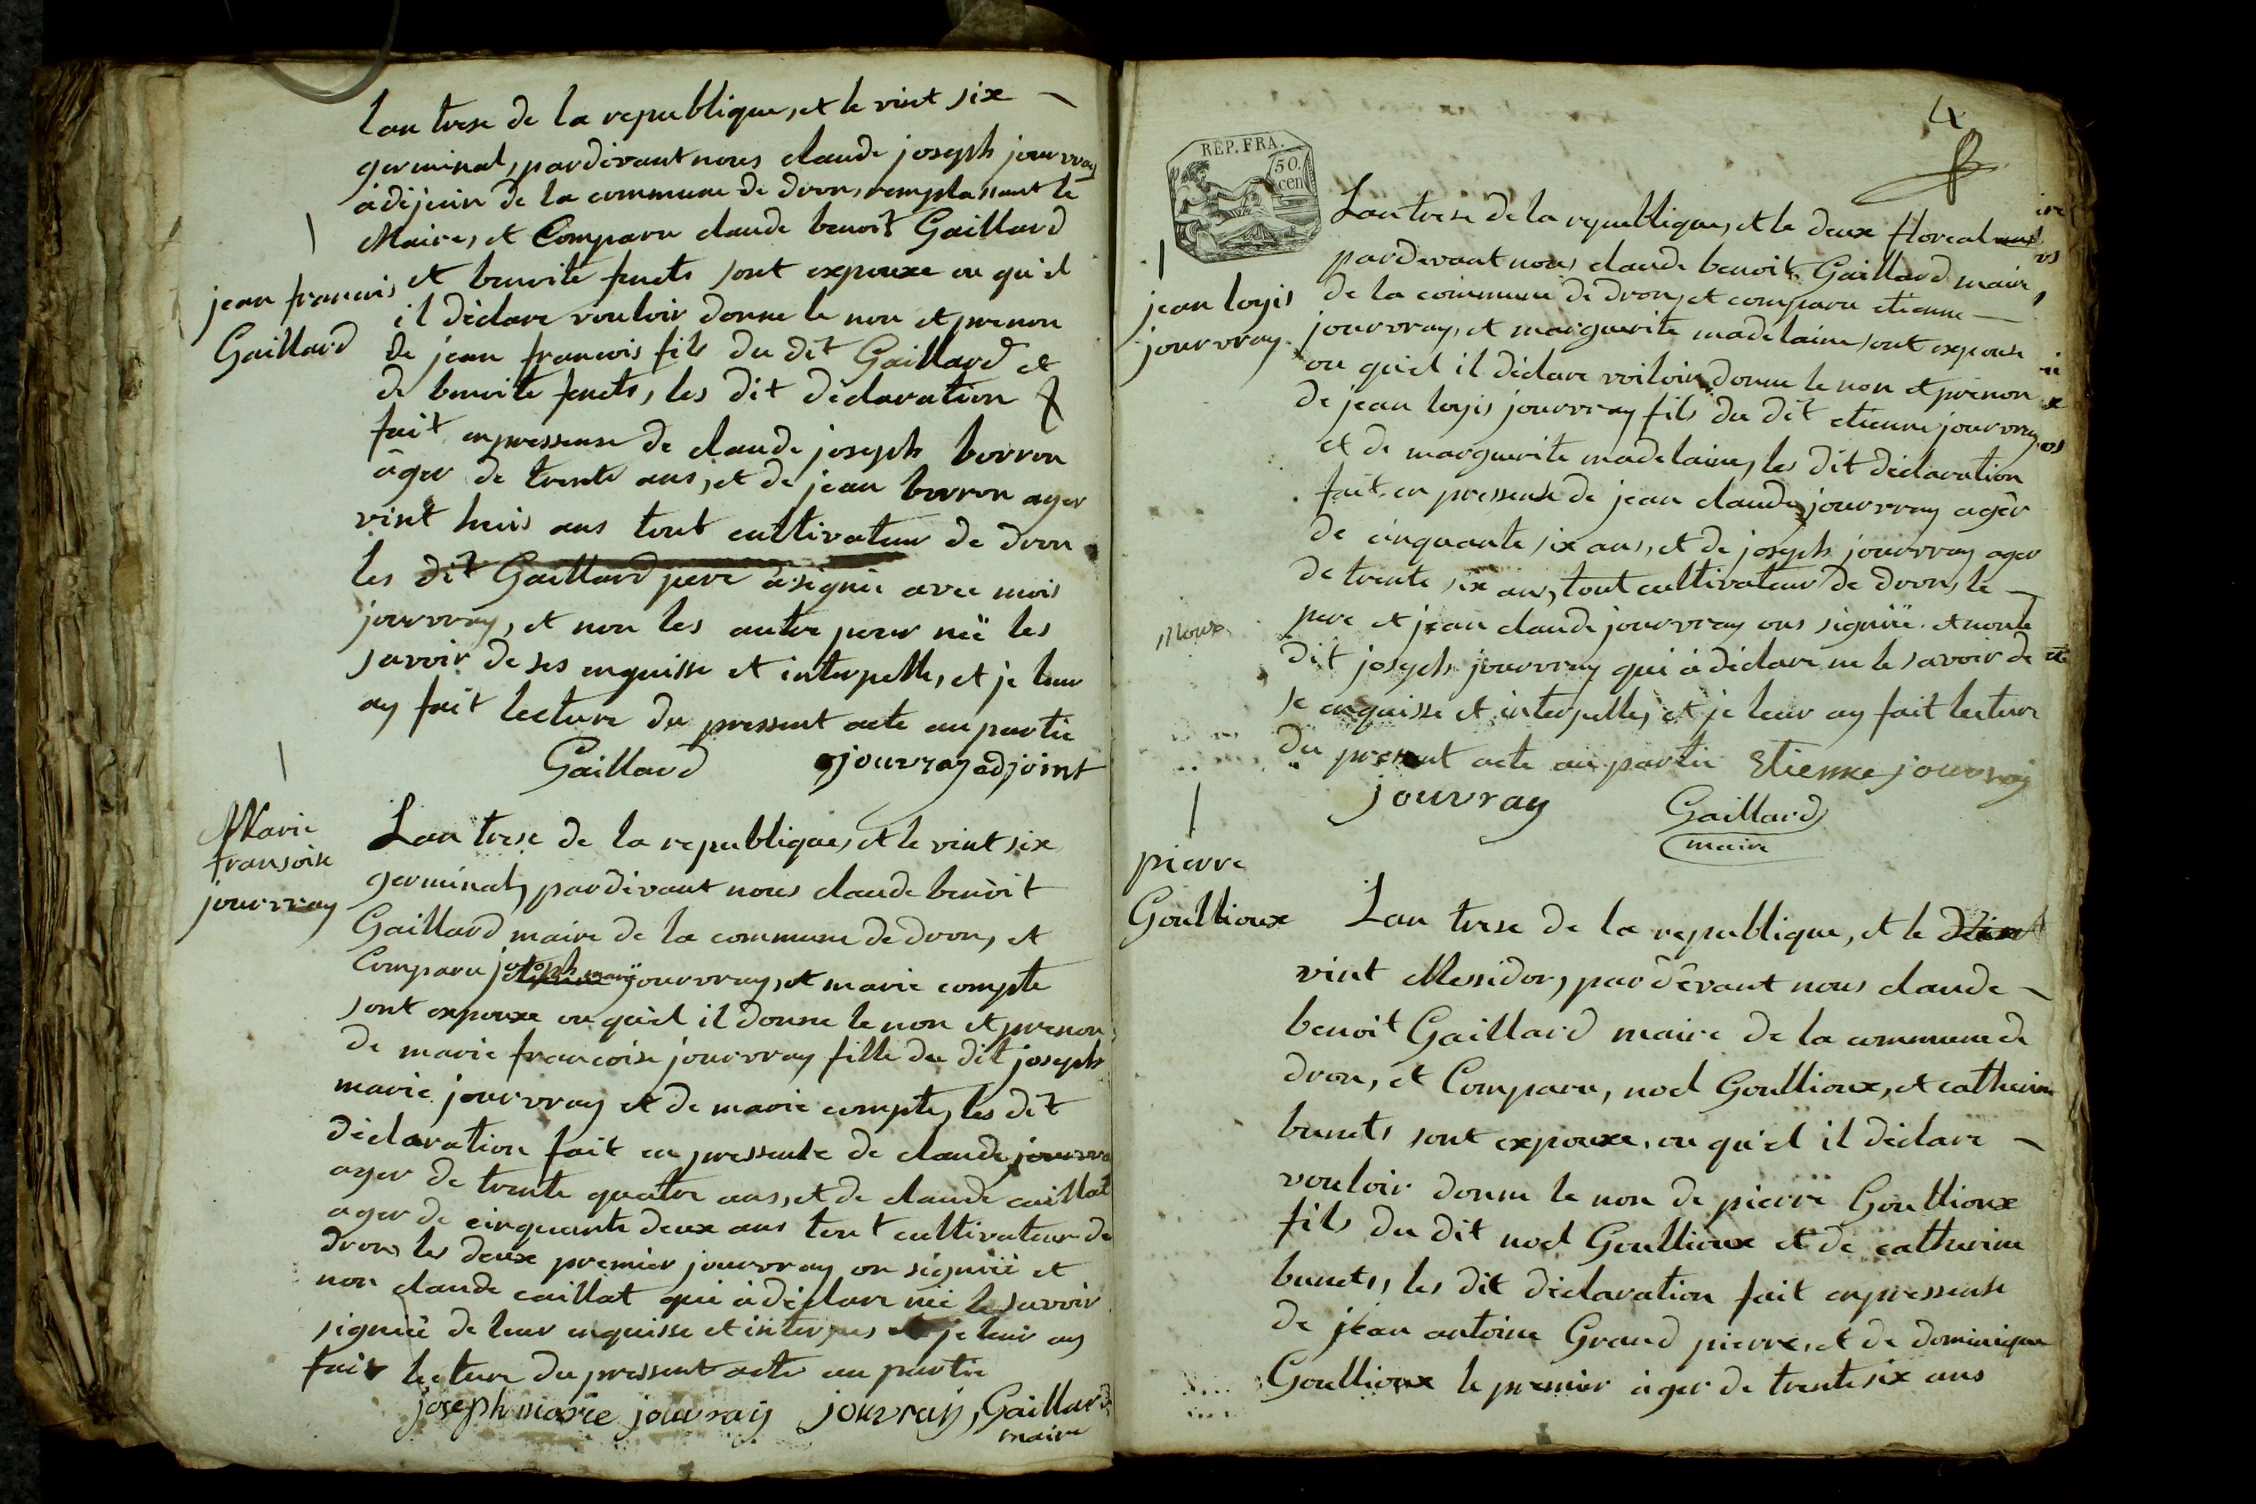 lan trese de la republique, et le vint six
germinal, pardevant nous claude joseph jourvray
adejoin de la commune de dron, remplassant le
Maire, et Comparu claude benoit Gaillard
jean francois
Gaillard
et benoite sont expouxe ou qu'el
il déclare vouloir donne le non et prenon
de jean francois fils du dit Gaillard et
de benoite les dit déclaration
fait enpressense de claude joseph borron
âger de trente ans, et de jean borron ager
vint huis ans tout cultivateur de dron
les dit Gaillard pere a signié avec mois
jourvray, et non les autre pour nëe les
savoir de ses enquisse et interpelle, et je leur
ay fait lecture du pressent acte au partie
Gaillard jouvray adjoint
Marie
fransoise
jourvray
Lan trese de la republique, et le vint six
germinal, pardevant nous claude benoit
Gaillard maire de la commune de dron, et
Comparu joseph marie jourvray, et marie compte
sont expouxe ou qu'el il donne le non et prenon
de marie francoise jourvray fille du dit joseph
marie jourvray et de marie compte, les dit
déclaration fait en pressense de claude jourvra
ager de trente quatre ans, et de claude caillat
ager de cinquante deux ans tout cultivateur de
dron, les deux premier jourvray on signiié et
non claude caillat qui à déclare nëe le savoir
signiié de leur enquisse et et je leur ay
fait lecture du pressent acte au partie
joseph marie jouvray jouvray, Gaillard
maire
4
REP. FRA.
50.
cen
Lan trese de la republique, et le deux floreal
pardevant nous claude benoit Gaillard maire
jean loyis
jourvray
de la commune de dron, et comparu etienne
jourvray, et marguerite madelaine, sont expouse
ou qu'el il déclare voiloir donne le non et prenon
de jean loyis jourvray fils du dit etienne jourvray
et de marguerite madelaine, les dit déclaration
fait en pressense de jean claude jourvray agér
de cinquante six ans, et de joseph jourvray ager
de trente six ans, tout cultivateur de dron, le
pere et jean claude jourvray ons signiië et non le
dit joseph jourvray qui à déclare ne le savoir de
se enquisse et interpelle, et je leur ay fait lecture
du present acte au partie Etienne jouvray
jouvray
Gaillard
maire
pierre
Goullioux
Lan trese de la republique, et le
vint Messidor, pardêvant nous claude
benoit Gaillard maire de la commune de
dron, et Comparu, noel Goullioux, et catherine
bunets sont expouxe, ou qu'el il déclare
vouloir donne le non de pierre Goullioux
fils du dit noel Goullioux et de catherine
bunets, les dit déclaration fait enpressense
de jean antoine Grand pierre, et de dominique
Goullioux le premier ager de trente six ans